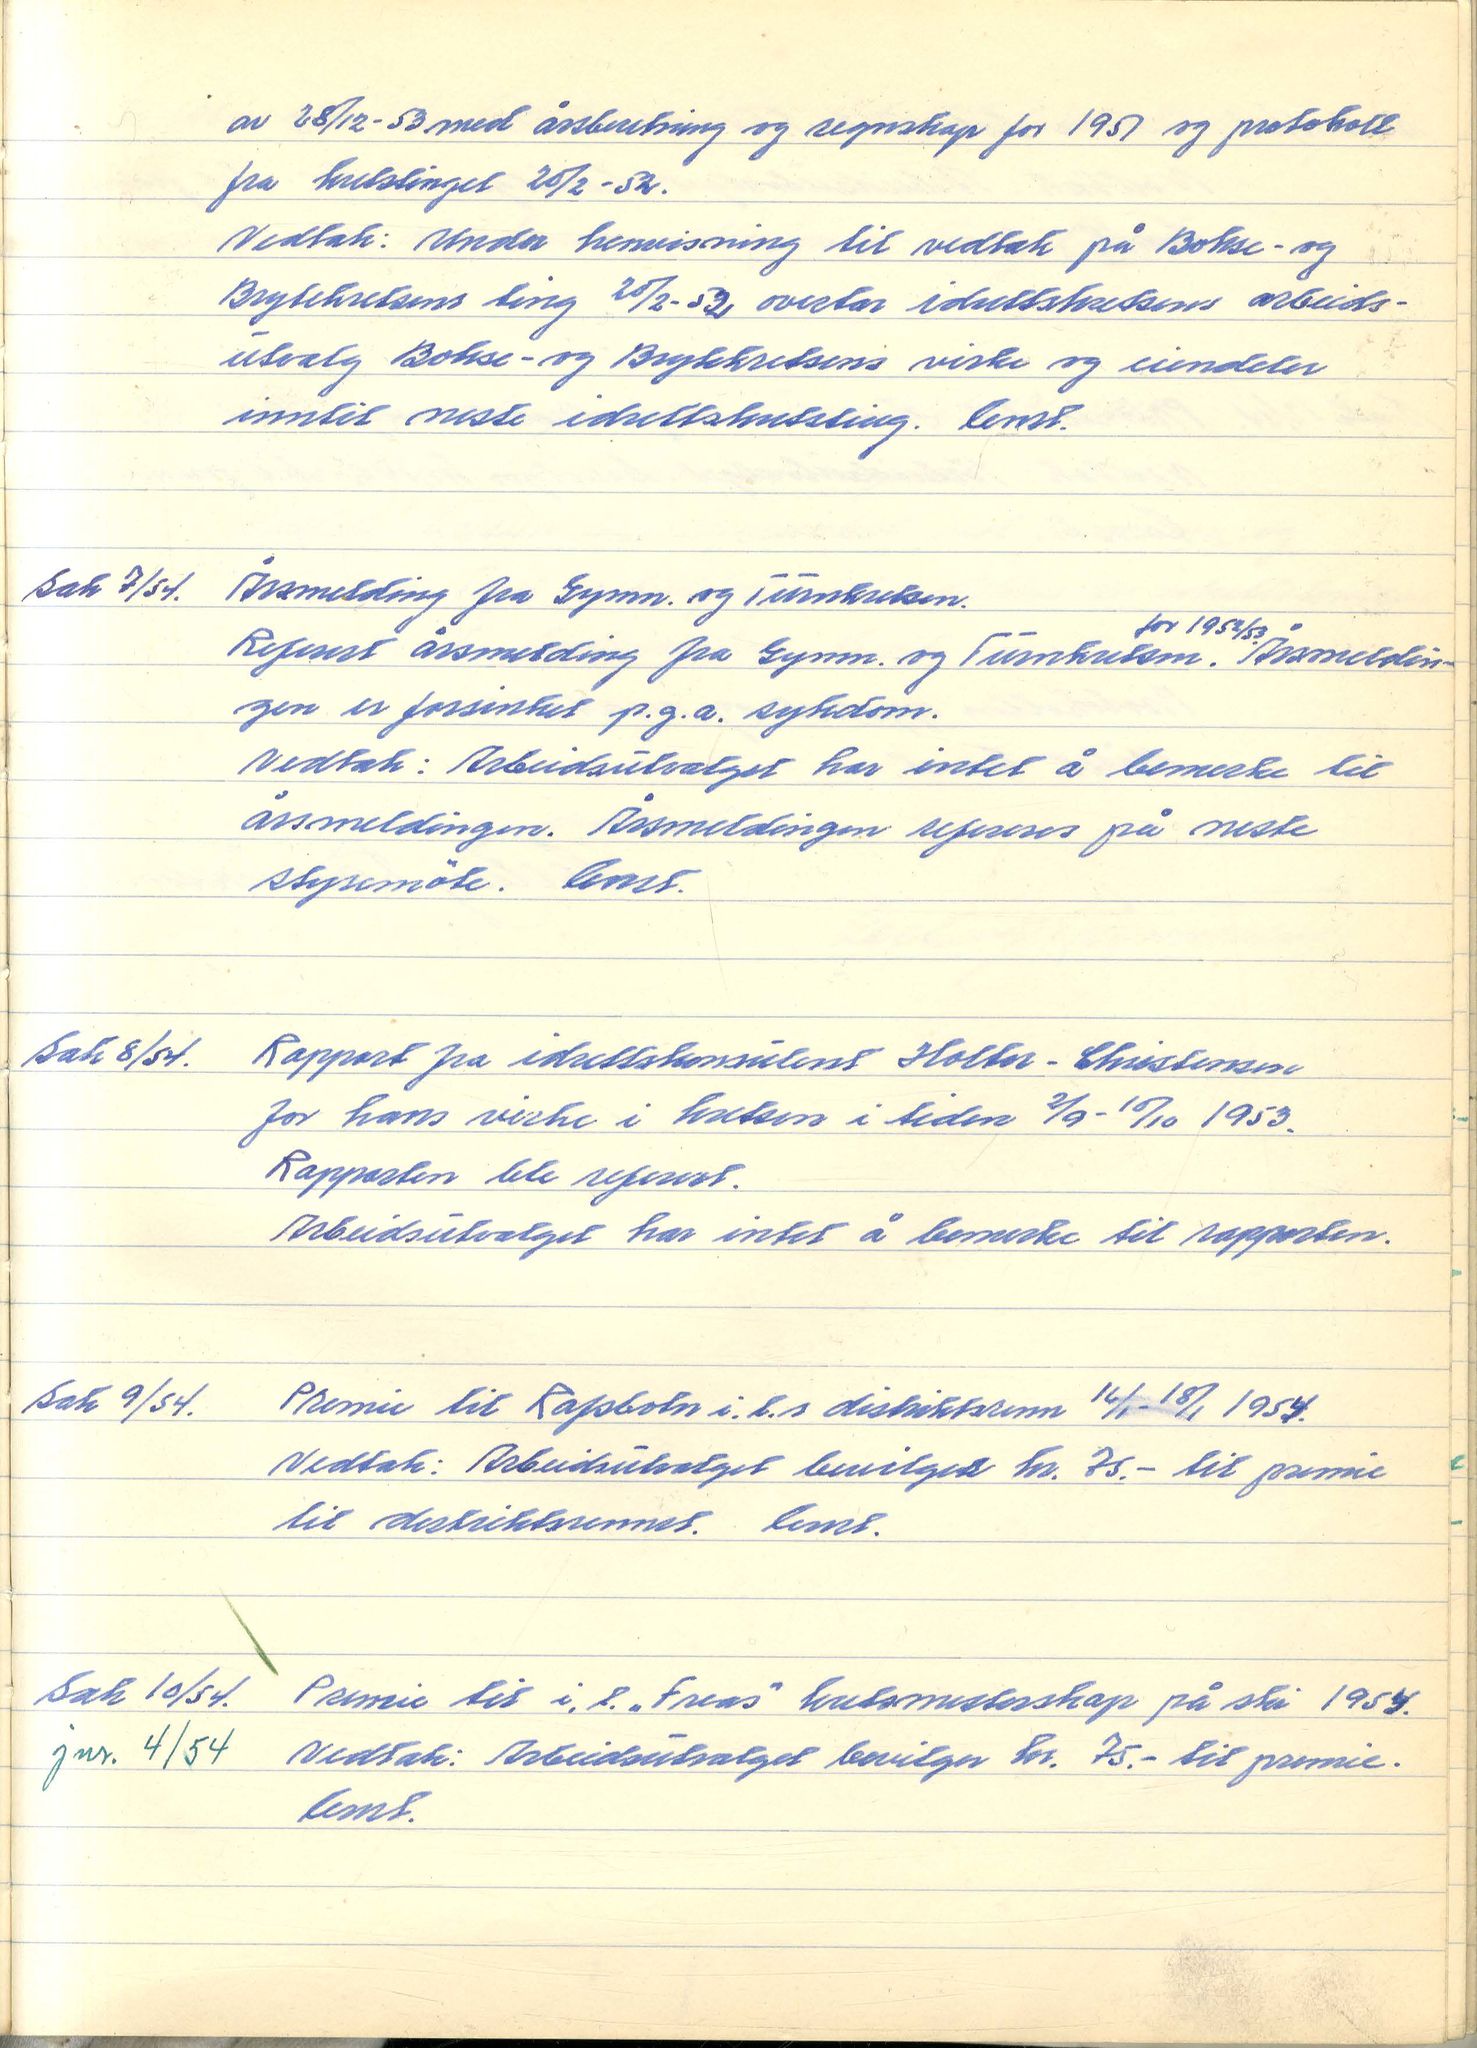 av 28/12-53 med årsberetning og regnskap for 1951 og protokoll
fra kretstinget 25/2-52.
Vedtak: Under henvisning til vedtak på Bokse- og
Brytekretsens ting 25/2-52 overtar idrettskretsens arbeids-
utvalg Bokse- og Brytekretsens virke og eiendeler
inntil neste idrettskretsting. Enst.
Sak 7/54. Årsmelding fra Gymn. og Turnkretsen.
Referert årsmelding fra Gymn. og Turnkretsen for 1952/53. Årsmeldin-
gen er forsinket p.g.a. sykdom.
Vedtak: Arbeidsutvalget har intet å bemerke til
årsmeldingen. Årsmeldingen refereres på neste
styremöte. Enst.
Sak 8/54. Rapport fra idrettskonsulent Holter-Christensen
for hans virke i kretsen i tiden 2/9-15/10 1953.
Rapporten ble referert.
Arbeidsutvalget har intet å bemerke til rapporten.
Sak 9/54. Premie til Rafsbotn i.l.s distriktsrenn 1954.
Vedtak: Arbeidsutvalget bevilger kr. 75.- til premie
til distriktsrennet. Enst.
Sak 10/54. Premie til i.l. „Freas" kretsmesterskap på ski 1954.
jnr. 4/54 Vedtak: Arbeidsutvalget bevilger kr. 75.- til premie.
Enst.